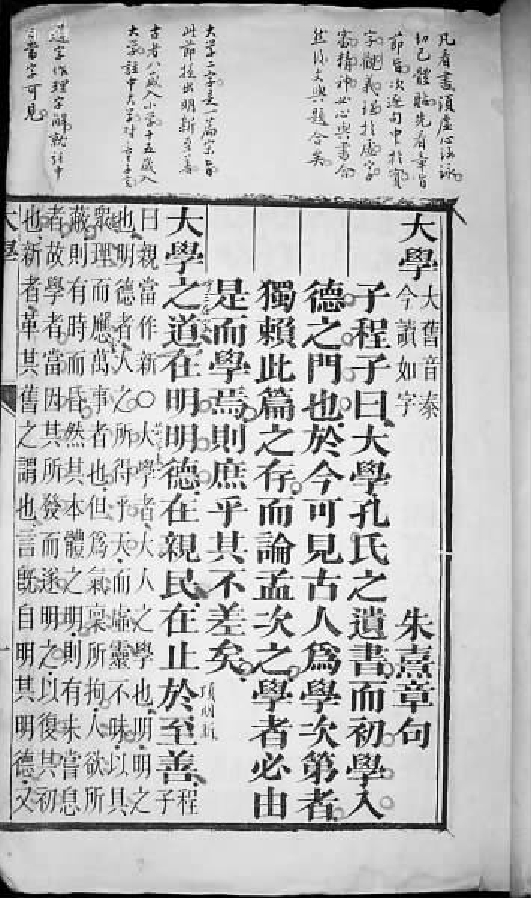 凡看書須虛心涵泳
切己體驗先看章旨
節旨次逐句中於實
字觀義理於虛字
審精神必心與書合
然後文與題合矣
大學二字是一篇宗旨
此節提出明新至善
古者八歲入小學十五歲入
大學註中大學對小學言
這字作理字解就註中
當字可見
大學
大舊音泰
今讀如字
朱熹章句
子程子曰大學孔氏之遺書而初學入
德之門也於今可見古人為學次第者
獨賴此篇之存而論孟次之學者必由
是而學焉則庶乎其不差矣
大學之道在明明德在親民在止於至善
頂明新
程子
曰親當作新○大學者大人之學也明明之
也明德者人之所得乎天而虛靈不昧以具
衆理而應萬事者也但為氣稟所拘人欲所
蔽則有時而昏然其本體之明則有未嘗息
者故學者當因其所發而遂明之以復其初
也新者革其舊之謂也言既自明其明德又
大學